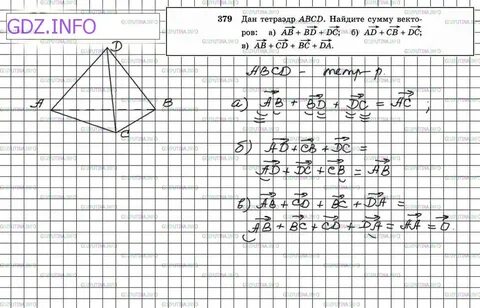 GDZ.INFO
379 Дан тетраэдр ABCD. Найдите сумму векто-
ров: а) AB + BD + DC; б) AD + CB + DC;
в) AB + CD + BC + DA.
ABCD - тетр-р.
D
A
B
C
а) AB + BD + DC = AC ;
б) AD + CB + DC =
AD + DC + CB = AB
в) AB + CD + BC + DA =
AB + BC + CD + DA = AA = 0